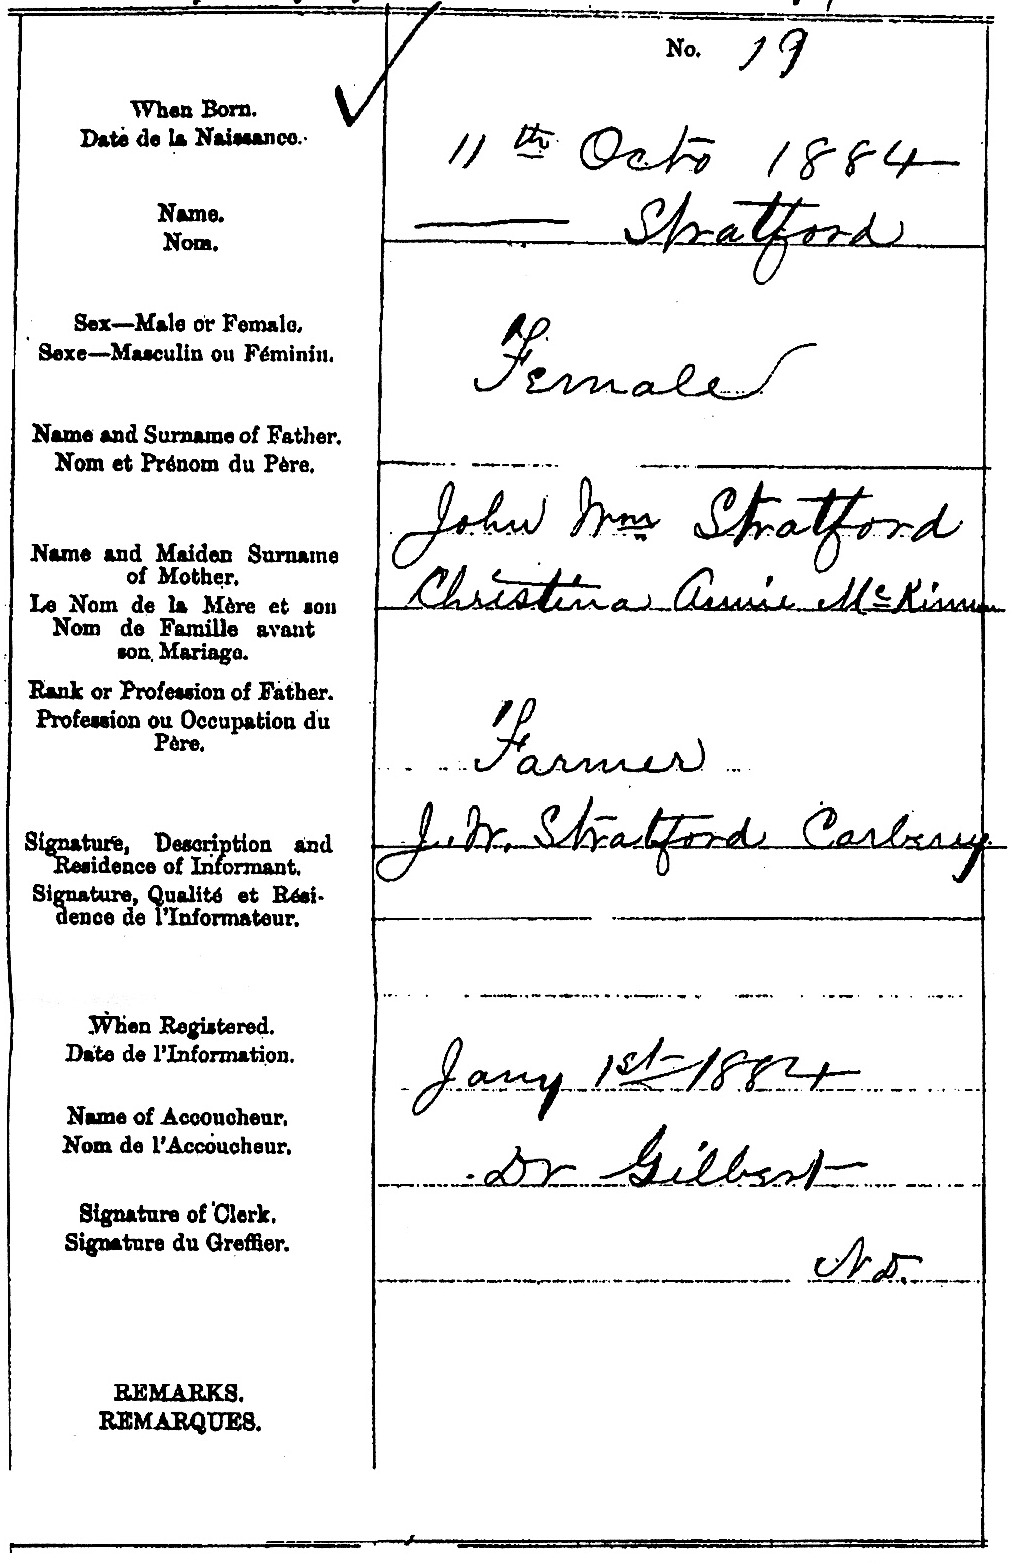 No. 19
When Born.
Date de la Naissance.
11th Octo 1884
Name.
Nom.
Stratford
Sex—Male or Female.
Sexe—Masculin ou Féminin.
Female
Name and Surname of Father.
Nom et Prénom du Père.
John Wm Stratford
Name and Maiden Surname
of Mother.
Le Nom de la Mère et son
Nom de Famille avant
son Mariage.
Christina Annie McKinnon
Rank or Profession of Father.
Profession ou Occupation du
Père.
Farmer
Signature, Description and
Residence of Informant.
Signature, Qualité et Rési-
dence de l'Informateur.
J. W. Stratford Carberry
When Registered.
Date de l'Information.
Jany 1st 1884
Name of Accoucheur.
Nom de l'Accoucheur.
Dr Gilbert
Signature of Clerk.
Signature du Greffier.
REMARKS.
REMARQUES.